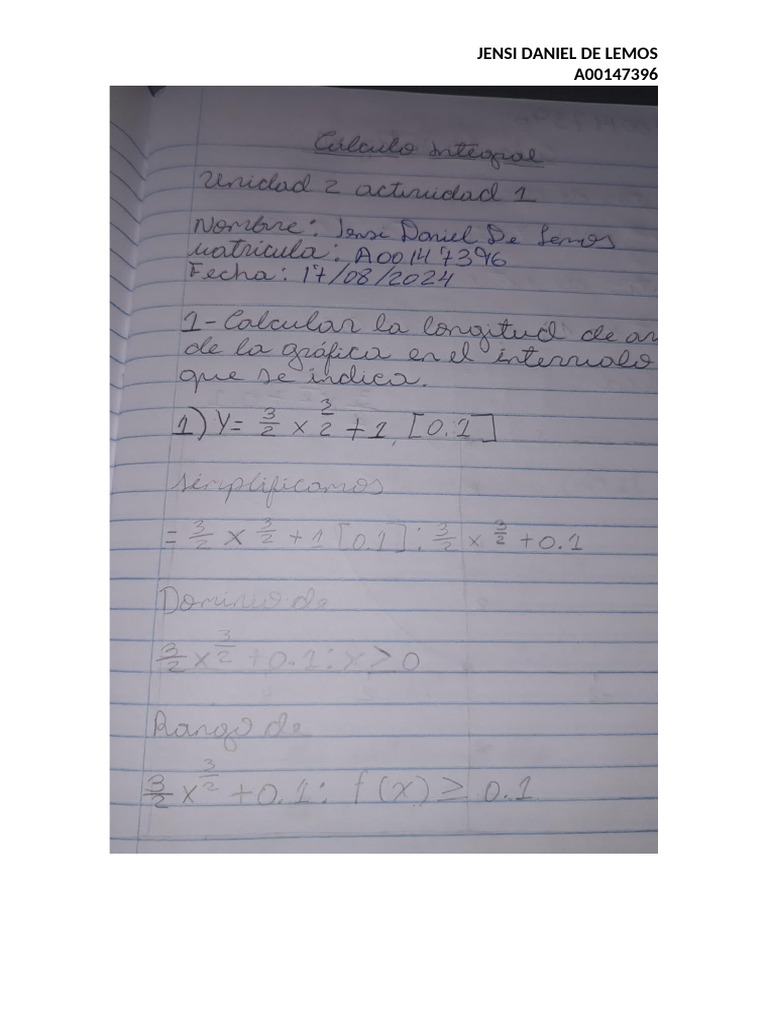 JENSI DANIEL DE LEMOS
A00147396
Cálculo Integral
Unidad 2 actividad 1
Nombre: Jensi Daniel De Lemos
Matricula: A00147396
Fecha: 17/08/2024
1-Calcular la longitud de ar
de la gráfica en el intervalo
que se indica.
1) Y= 3/2 x 3/2 + 1, [0.1]
simplificamos
= 3/2 x 3/2 + 1 [0.1] : 3/2 x 3/2 + 0.1
Dominio de
3/2 x 3/2 + 0.1 : x ≥ 0
Rango de
3/2 x 3/2 + 0.1 : f(x) ≥ 0.1